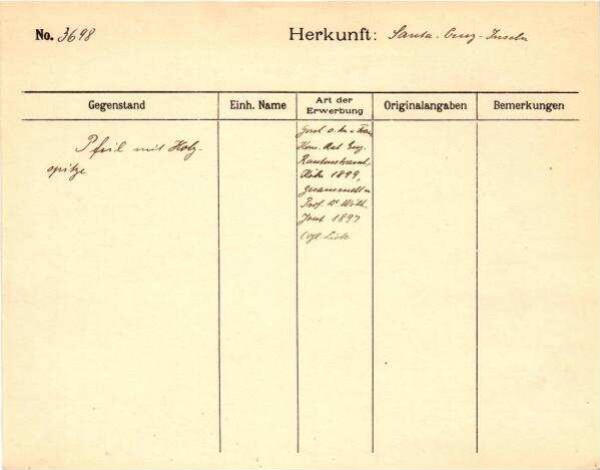 No. 3698
Herkunft: Santa-Cruz-Inseln
Gegenstand
Einh. Name
Art der Erwerbung
Originalangaben
Bemerkungen
Pfeil mit Holz-
spitze
Gesch.
Köln 1899,
gesammelt v.
Prof. Dr Wilh.
Joest 1897
(vgl. Liste